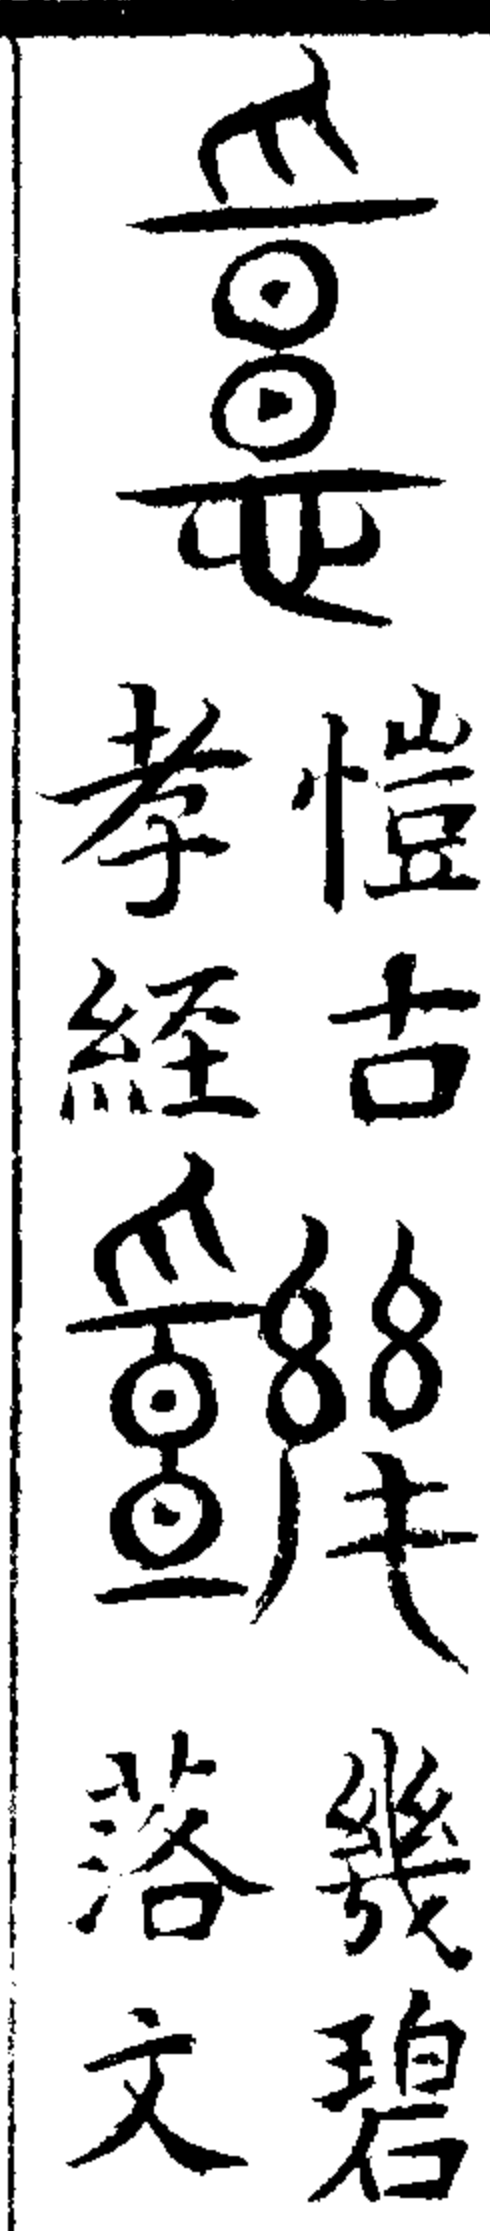 愷古
孝経
幾碧
落文